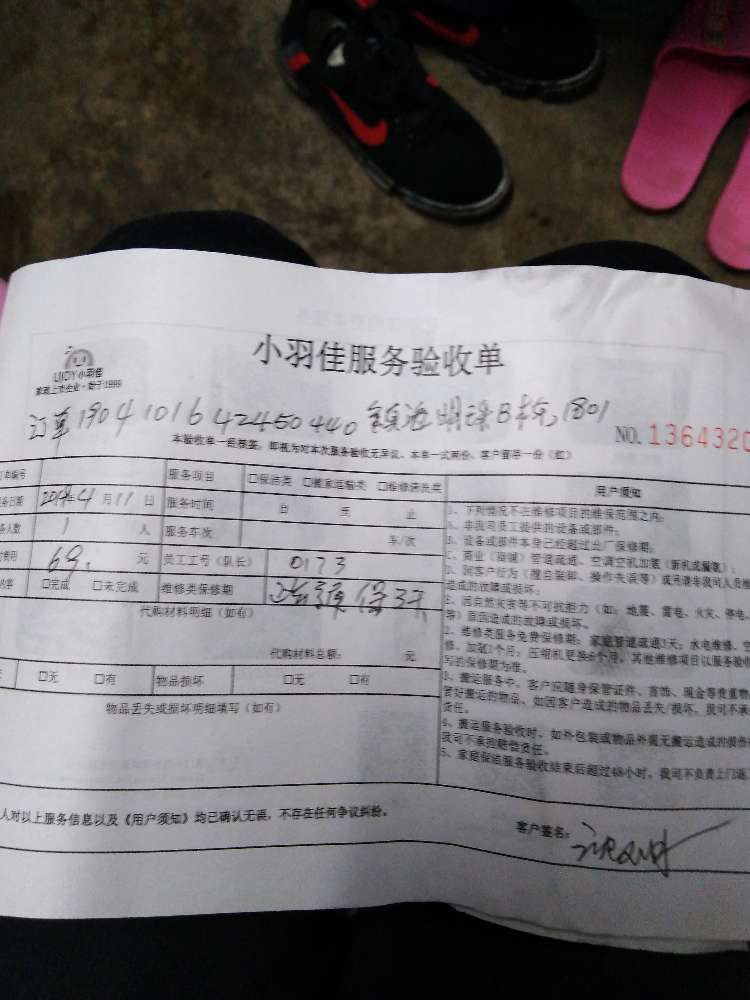 小羽佳服务验收单
UJOY小羽佳
家政上市企业·始于1999
订单1904101642450440 明珠B栋,1801
NO. 1364320
本验收单一经核签,即视为对本次服务验收无异议。本单一式两份、客户留存一份(红)
订单编号 服务项目 □保洁类 □搬家运输类 □维修清洗类 用户须知
务日期 2019年4月11日 服务时间 自 至 止
务人数 1 人 服务车次 车/次
费用 69. 元 员工工号(队长) 0173
内容 □完成 □未完成 维修类保修期 保3天
代购材料明细(如有)
代购材料总额: 元
□无 □有 物品损坏 □无 □有
物品丢失或损坏明细填写(如有)
1、下列情况不在维修项目的维保范围之内:
A、非我司员工提供的设备或部件;
B、设备或部件本身已经超过出厂保修期;
C、商业(店铺)管道疏通、空调空机加氨(新机或漏氨);
D、因客户行为(擅自装卸、操作失误等)或另请非我司人员维
造成的故障或损坏;
E、因自然灾害等不可抗拒力(如:地震、雷电、火灾、停电、
等)原因造成的故障或损坏。
2、维修类服务免费保修期:家庭管道疏通3天;水电维修、空
修、加氨1个月;压缩机更换6个月,其他维修项目以服务验收
写的保修期为准。
3、搬运服务中,客户应随身保管证件、首饰、现金等贵重物
管好搬运的物品,如因客户造成的物品丢失/损坏,我司不承
责任。
4、搬运服务验收时,如外包装或物品外观无搬运造成的损伤
我司不承担赔偿责任。
5、家庭保洁服务验收结束后超过48小时,我司不负责上门返工
人对以上服务信息以及《用户须知》均已确认无误,不存在任何争议纠纷。
客户签名: